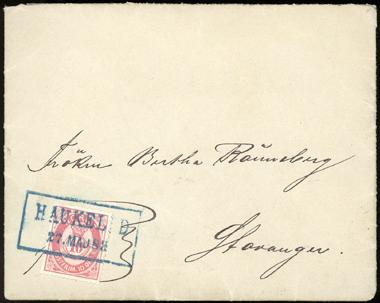 Frökn Bertha Rönneberg
Stavanger.
HAUKEL D
27. MAJ 88
10